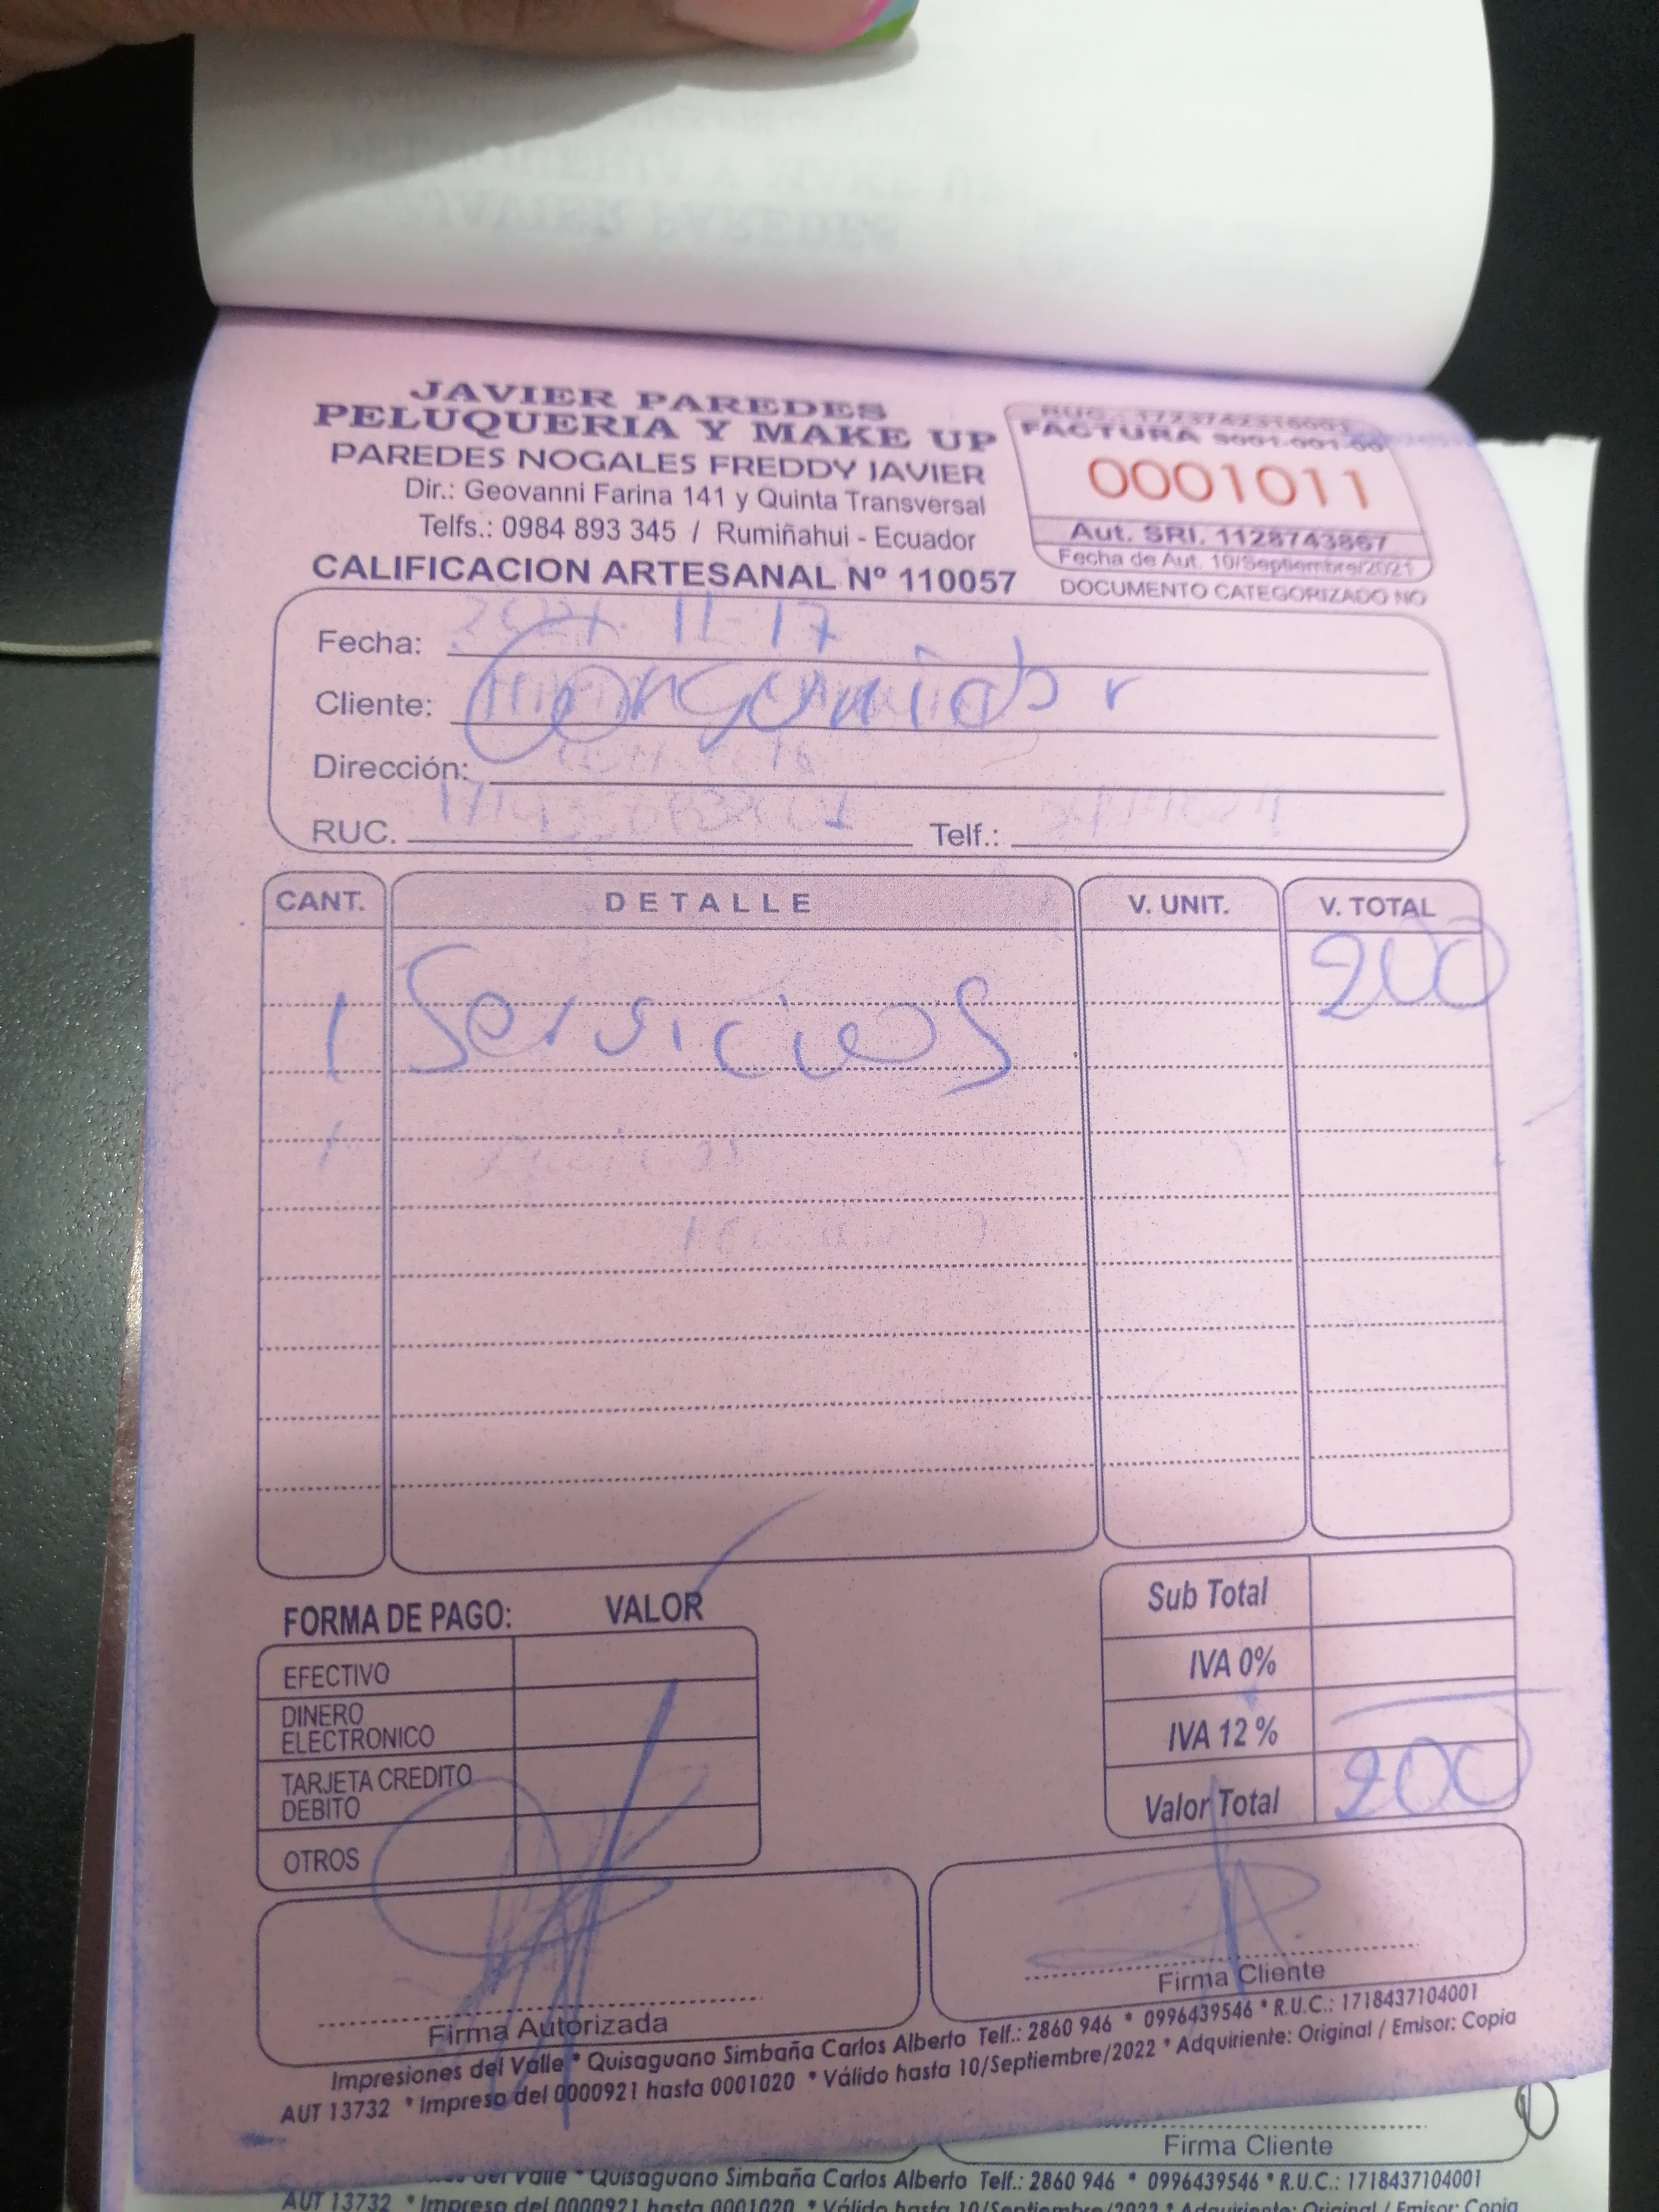 JAVIER PAREDES
PELUQUERIA Y MAKE UP
PAREDES NOGALES FREDDY JAVIER
Dir.: Geovanni Farina 141 y Quinta Transversal
Telfs.: 0984 893 345 / Rumiñahui - Ecuador
CALIFICACION ARTESANAL Nº 110057
RUC.: 1723742316001
FACTURA S001-001-00
0001011
Aut. SRI. 1128743867
Fecha de Aut. 10/Septiembre/2021
DOCUMENTO CATEGORIZADO NO
Fecha: 2021. 11-17
Cliente:
Dirección:
RUC. Telf.:
CANT. DETALLE V. UNIT. V. TOTAL
1 Servicios 200
FORMA DE PAGO: VALOR
EFECTIVO
DINERO
ELECTRONICO
TARJETA CREDITO
DEBITO
OTROS
Sub Total
IVA 0%
IVA 12 %
Valor Total 200
Firma Autorizada
Firma Cliente
Impresiones del Valle * Quisaguano Simbaña Carlos Alberto Telf.: 2860 946 * 0996439546 * R.U.C.: 1718437104001
AUT 13732 * Impreso del 0000921 hasta 0001020 * Válido hasta 10/Septiembre/2022 * Adquiriente: Original / Emisor: Copia
Firma Cliente
del Valle * Quisaguano Simbaña Carlos Alberto Telf.: 2860 946 * 0996439546 * R.U.C.: 1718437104001
AUT 13732 * Impreso del 0000921 hasta 0001020 * Válido hasta 10/Septiembre/2022 * Adquiriente: Original / Emisor: Copia